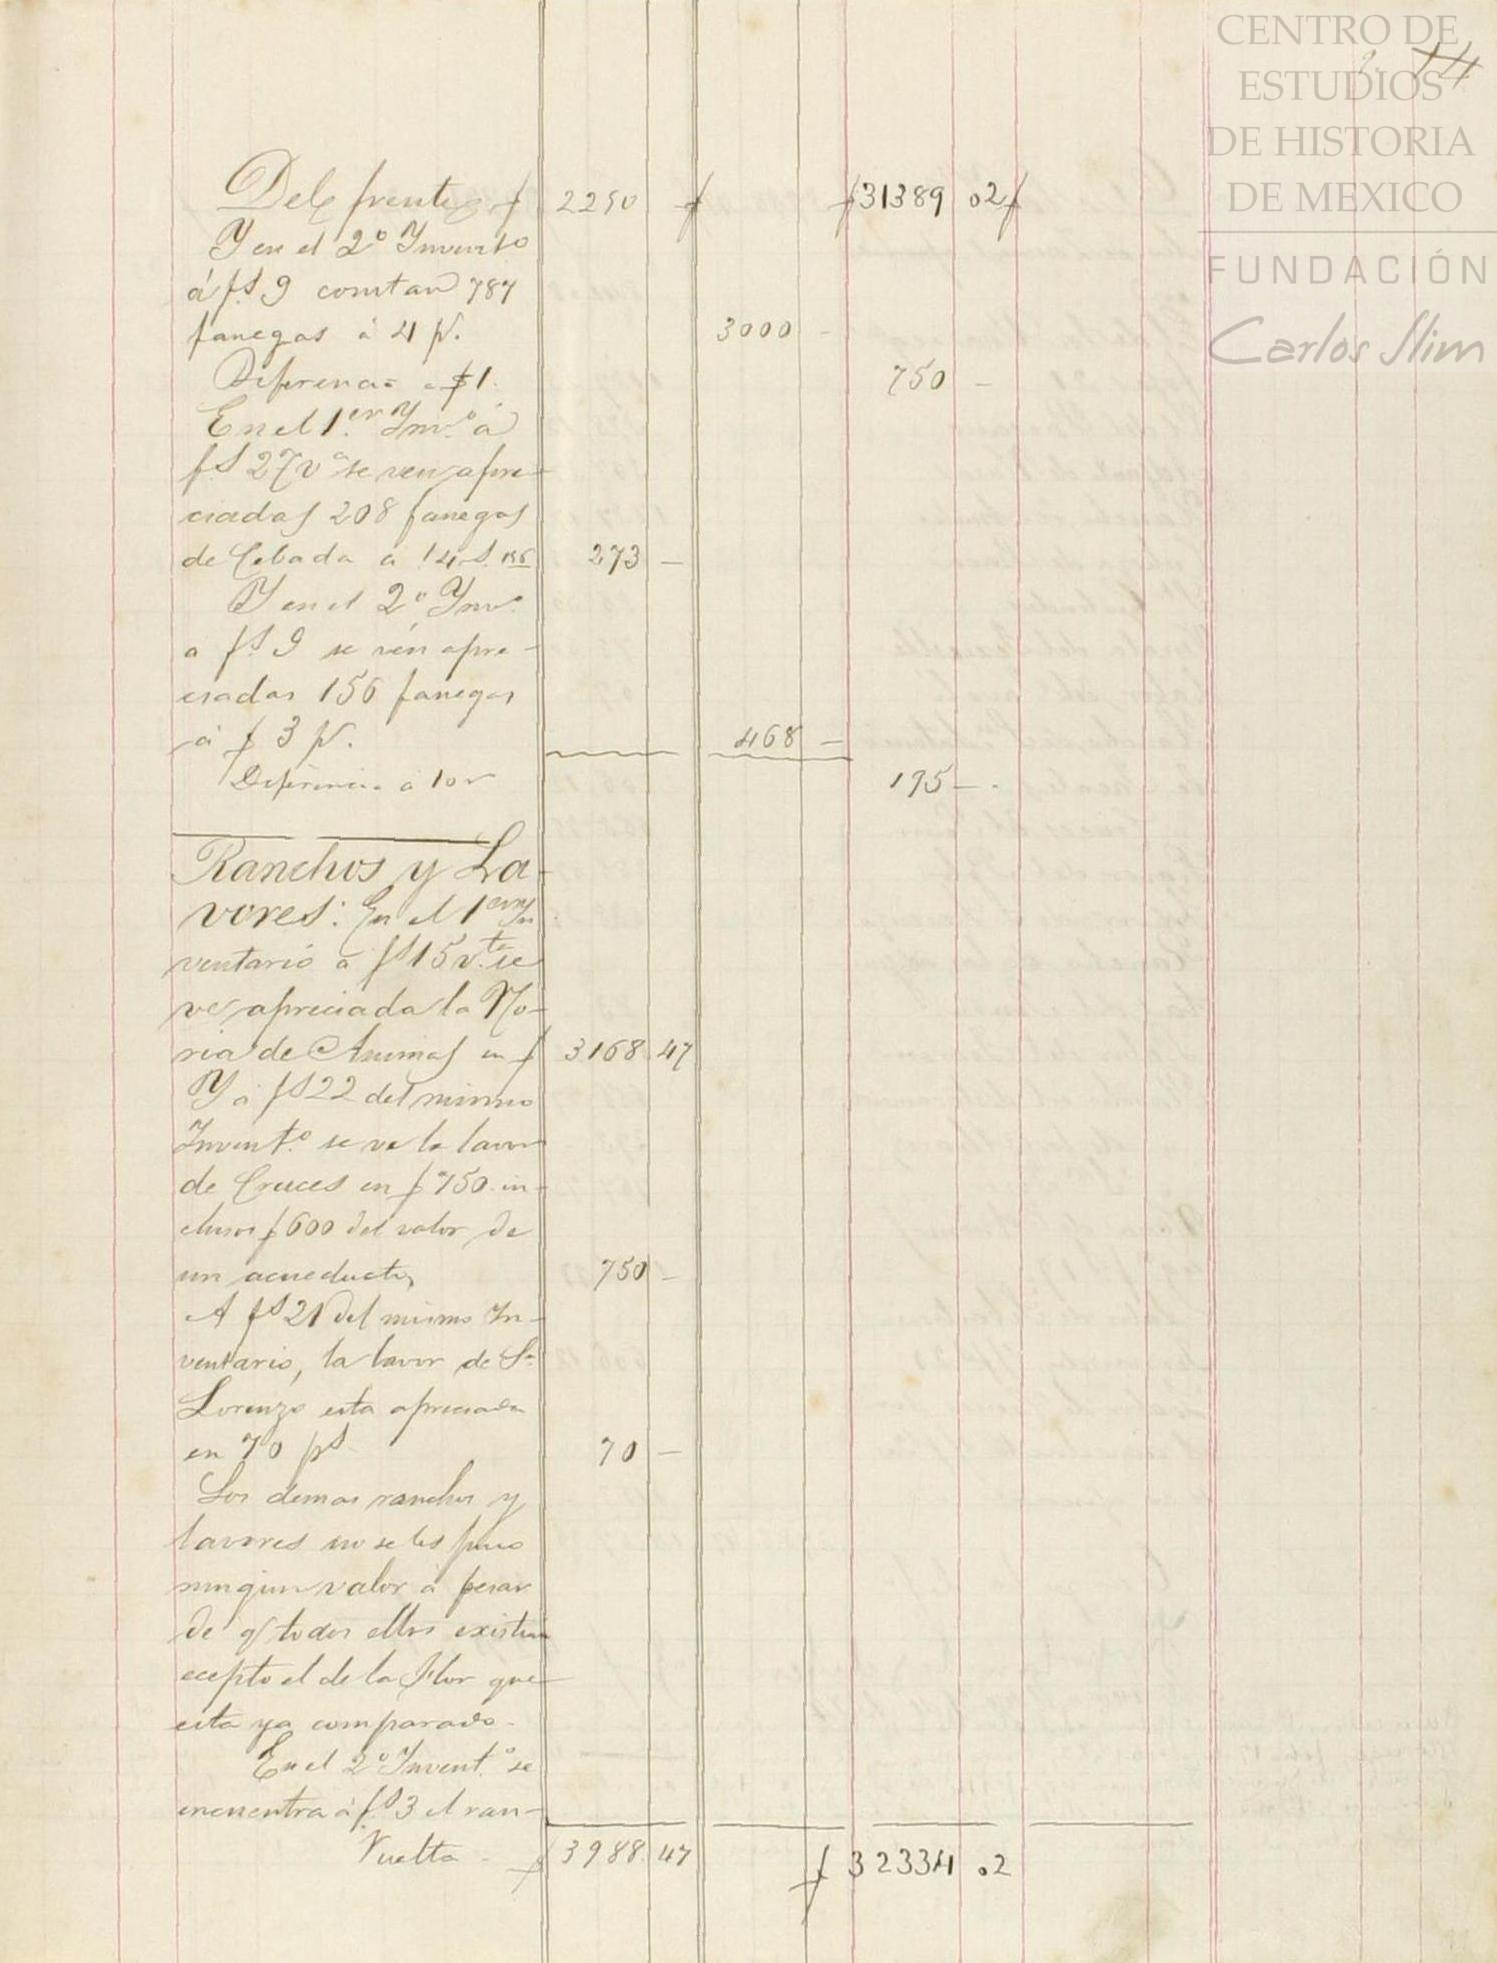 CENTRO DE
ESTUDIOS
DE HISTORIA
DE MEXICO
FUNDACIÓN
Carlos Slim
Del frente $ 2250 $ $ 31389 02 $
Y en el 2º Invento
á fs 9 constan 787
fanegas á 4 ps. 3000 -
Diferencia á $1. 750 -
En el 1.er Inv.º á
fs 27 va se ven apre-
ciadas 208 fanegas
de Cebada á 273 -
Y en el 2º Inv.º
a fs 9 se ven apre-
ciadas 156 fanegas
á $ 3 ps. 468 -
Diferencia á 10 r 195 -
Ranchos y La-
vores: En el 1er In
ventario a fs 15 vta se
ve apreciada la No-
ria de Animas en $ 3168 47
Y á fs 22 del mismo
Invent.º se ve la lavor
de Cruces en $ 750 in-
clusos $ 600 del valor de
un acueducto, 750 -
A fs 21 del mismo In-
ventario, la lavor de Sn
Lorenzo esta apreciada
en 70 ps 70 -
Los demas ranchos y
lavores no se les puso
ningun valor á pesar
de q todos ellos existian
ecepto el de la Flor que
esta ya comparado.
En el 2º Invent.º se
encuentra á fs 3 el ran-
Vuelta - $ 3988 47 $ 32334 02